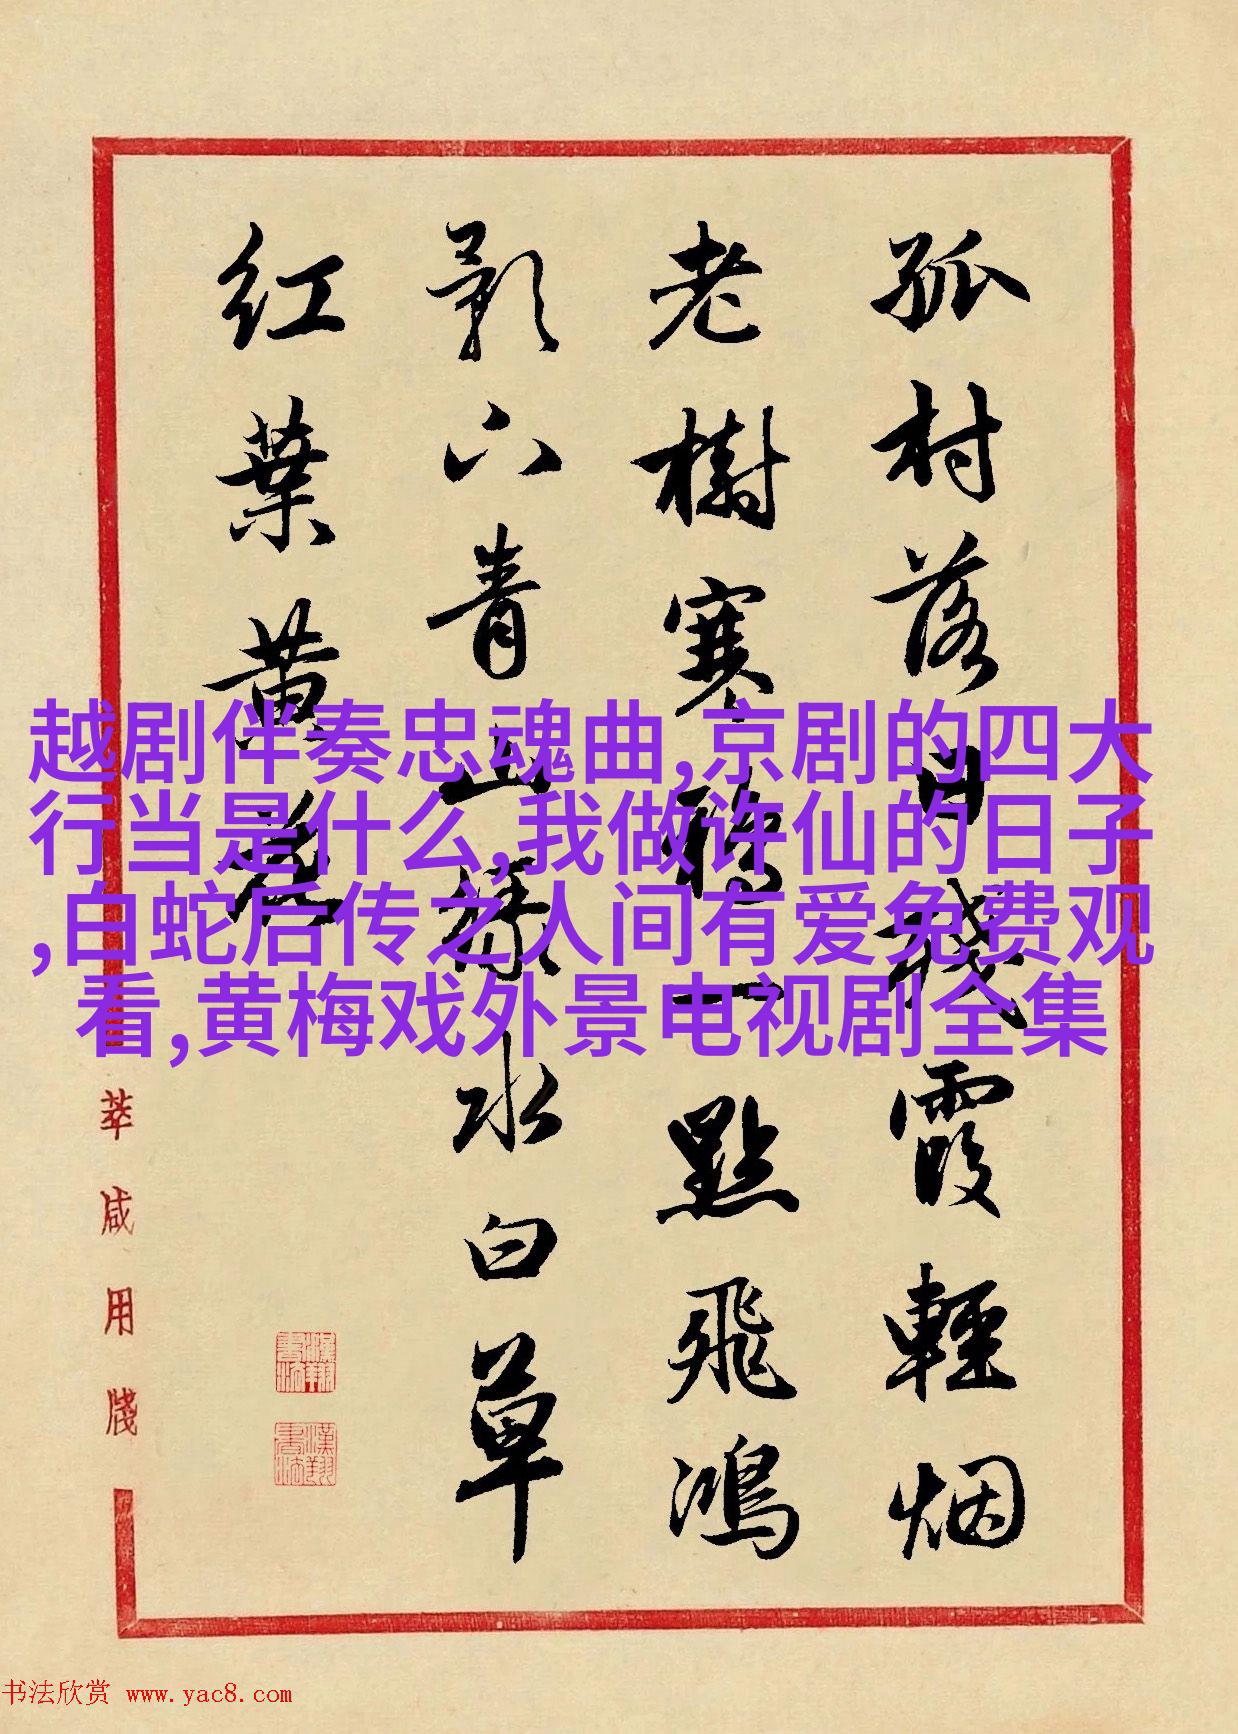 孤村落日残霞輕烟
老樹寒鴉一點飛鴻
影下青山綠水白草
红葉黄花
越剧伴奏忠魂曲,京剧的四大
行当是什么,我做许仙的日子
,白蛇后传之人间有爱免费观
看,黄梅戏外景电视剧全集
咸用牋
漢翔書法
漢翔書法
书法欣赏 www.yac8.com